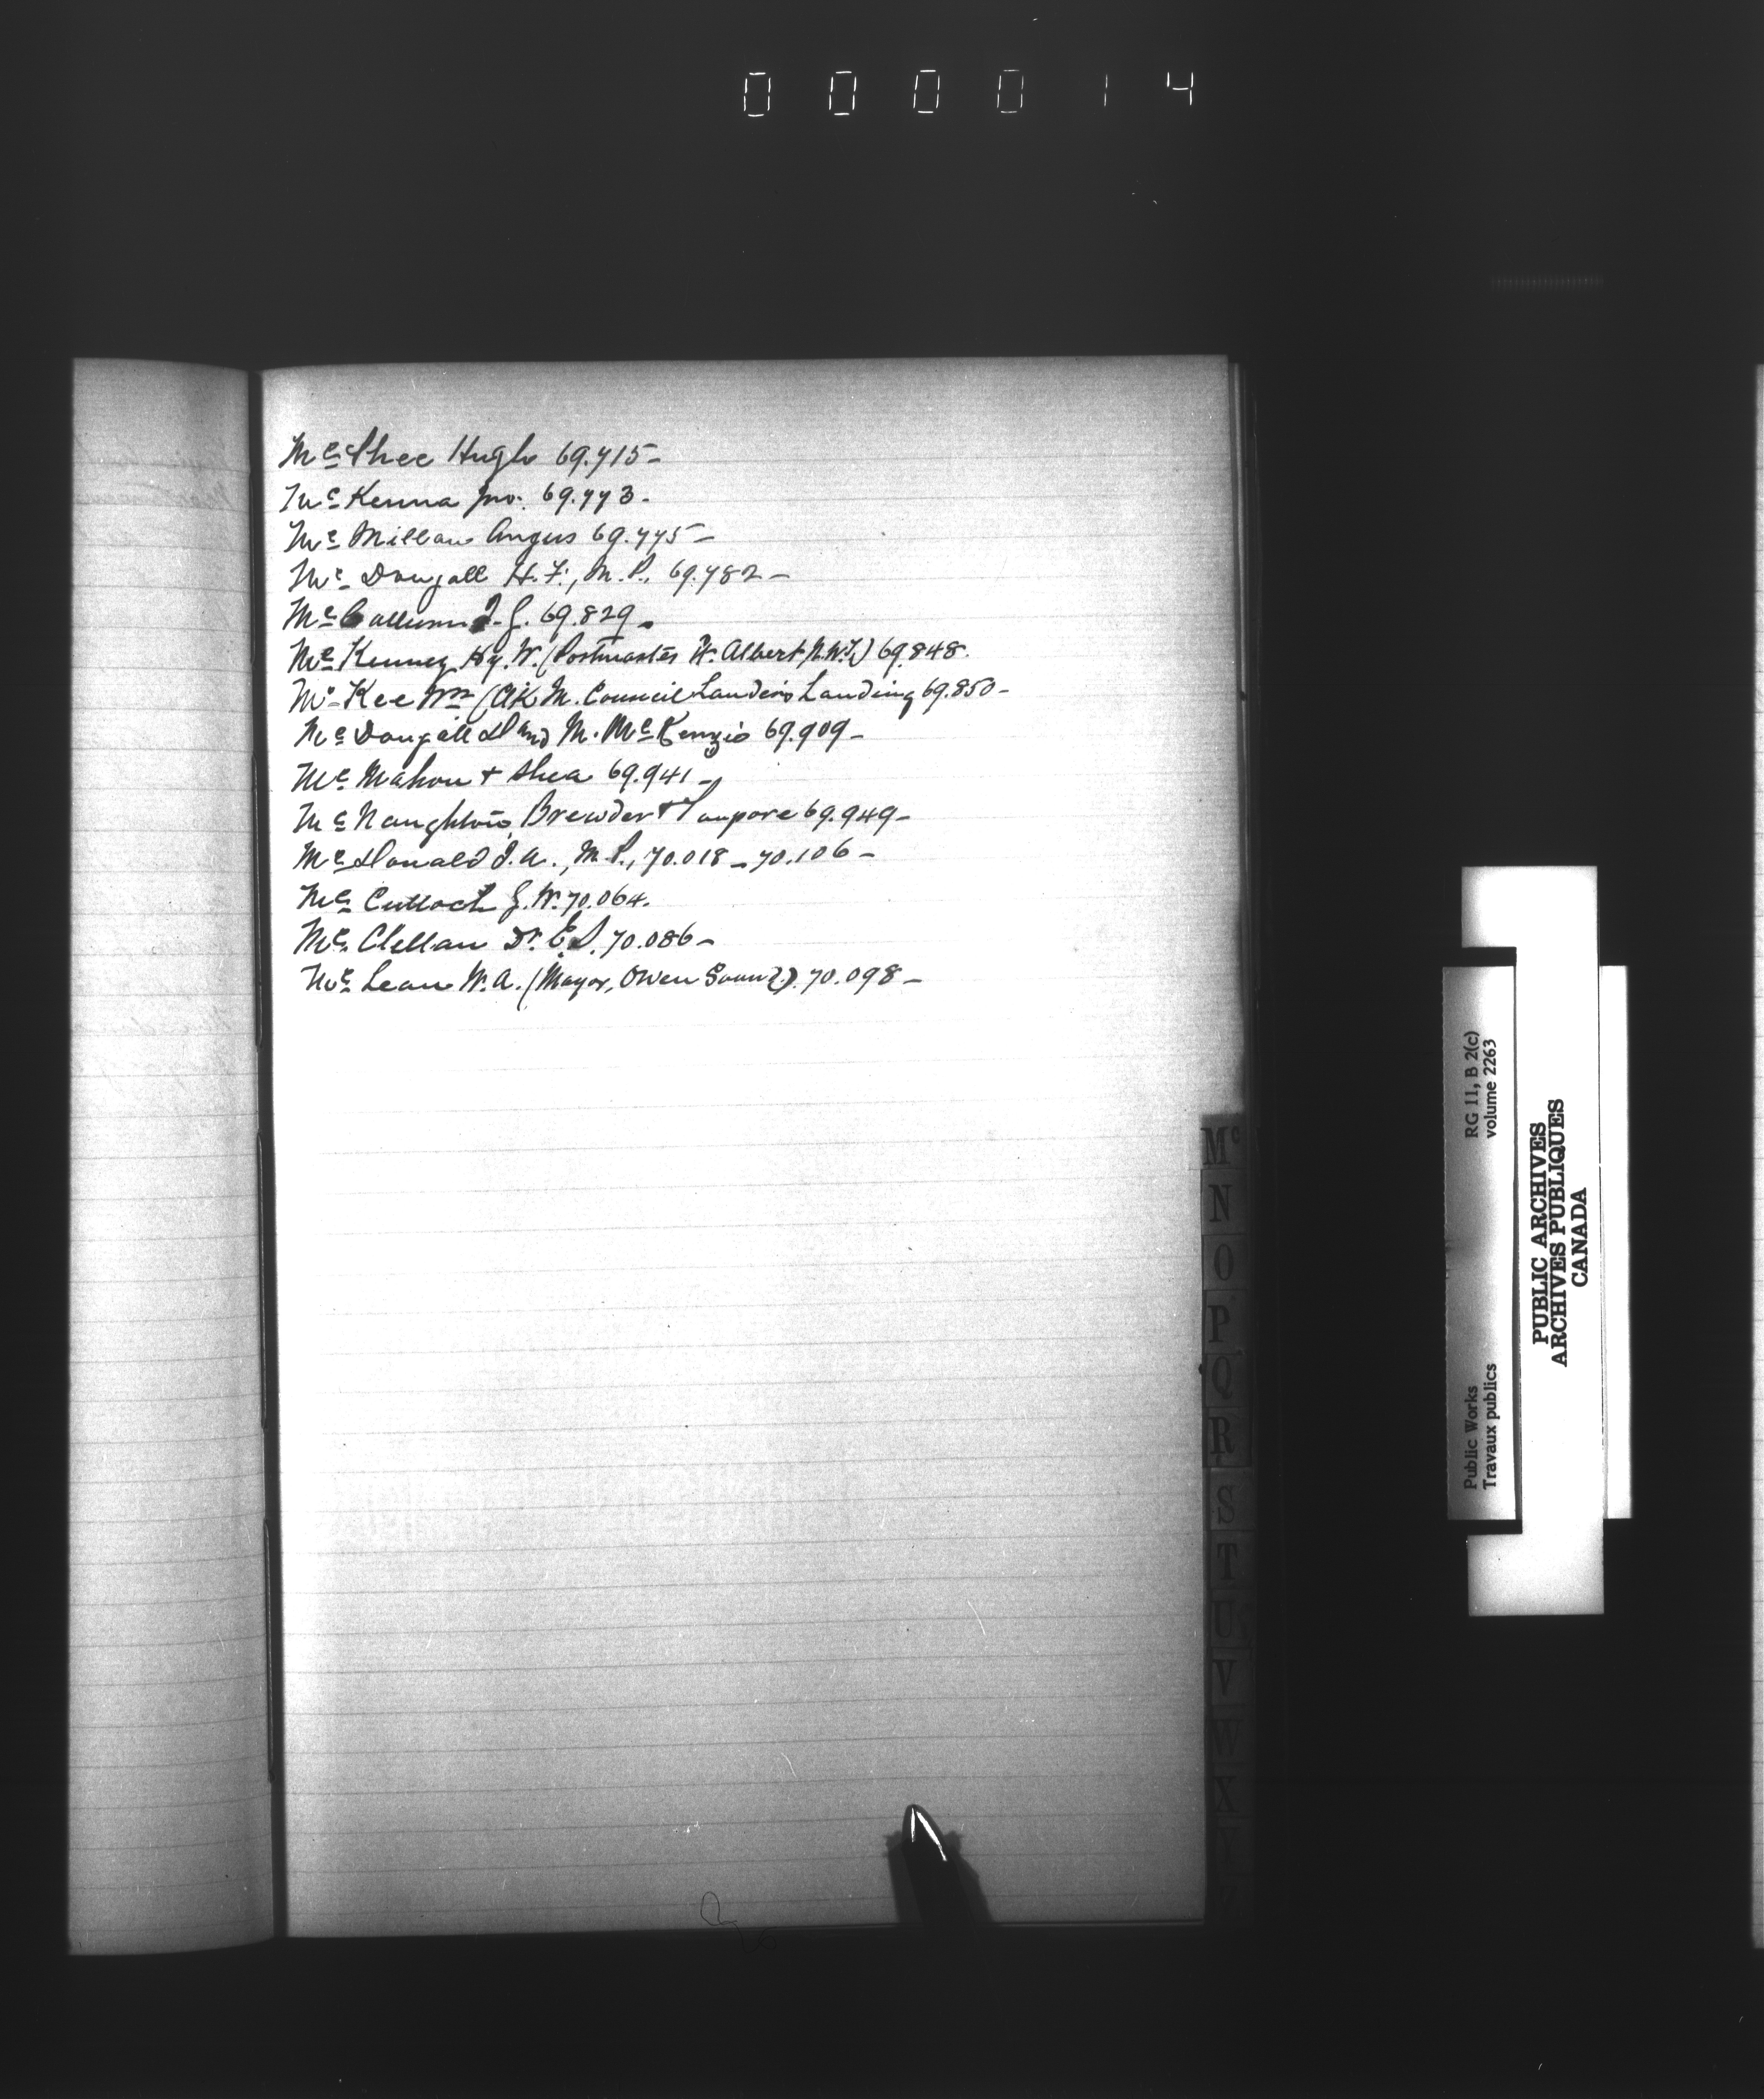 000014
McPhee Hugh 69.715-
McKenna Jno. 69.773-
McMillan Angus 69.775-
McDougall H.F., M.P. 69.782-
McCallum J.G. 69.829-
McKenney Hy. W. (Postmaster St. Albert N.W.T.) 69.848.
McKee Wm (Clk M. Council Landing 69.850-
McDougall D and M. McKenzie 69.909-
McMahon + Shea 69.941-
McNaughton Brewder + 69.949-
McDonald J.A., M.P., 70.018-70.106-
McCulloch G.W. 70.064.
McClellan Dr. 70.086-
McLean W.A. (Mayor, Owen Sound). 70.098-
Mc
N
O
P
Q
R
S
T
U
V
W
X
RG 11, B 2(c)
volume 2263
Public Works
Travaux publics
PUBLIC ARCHIVES
ARCHIVES PUBLIQUES
CANADA